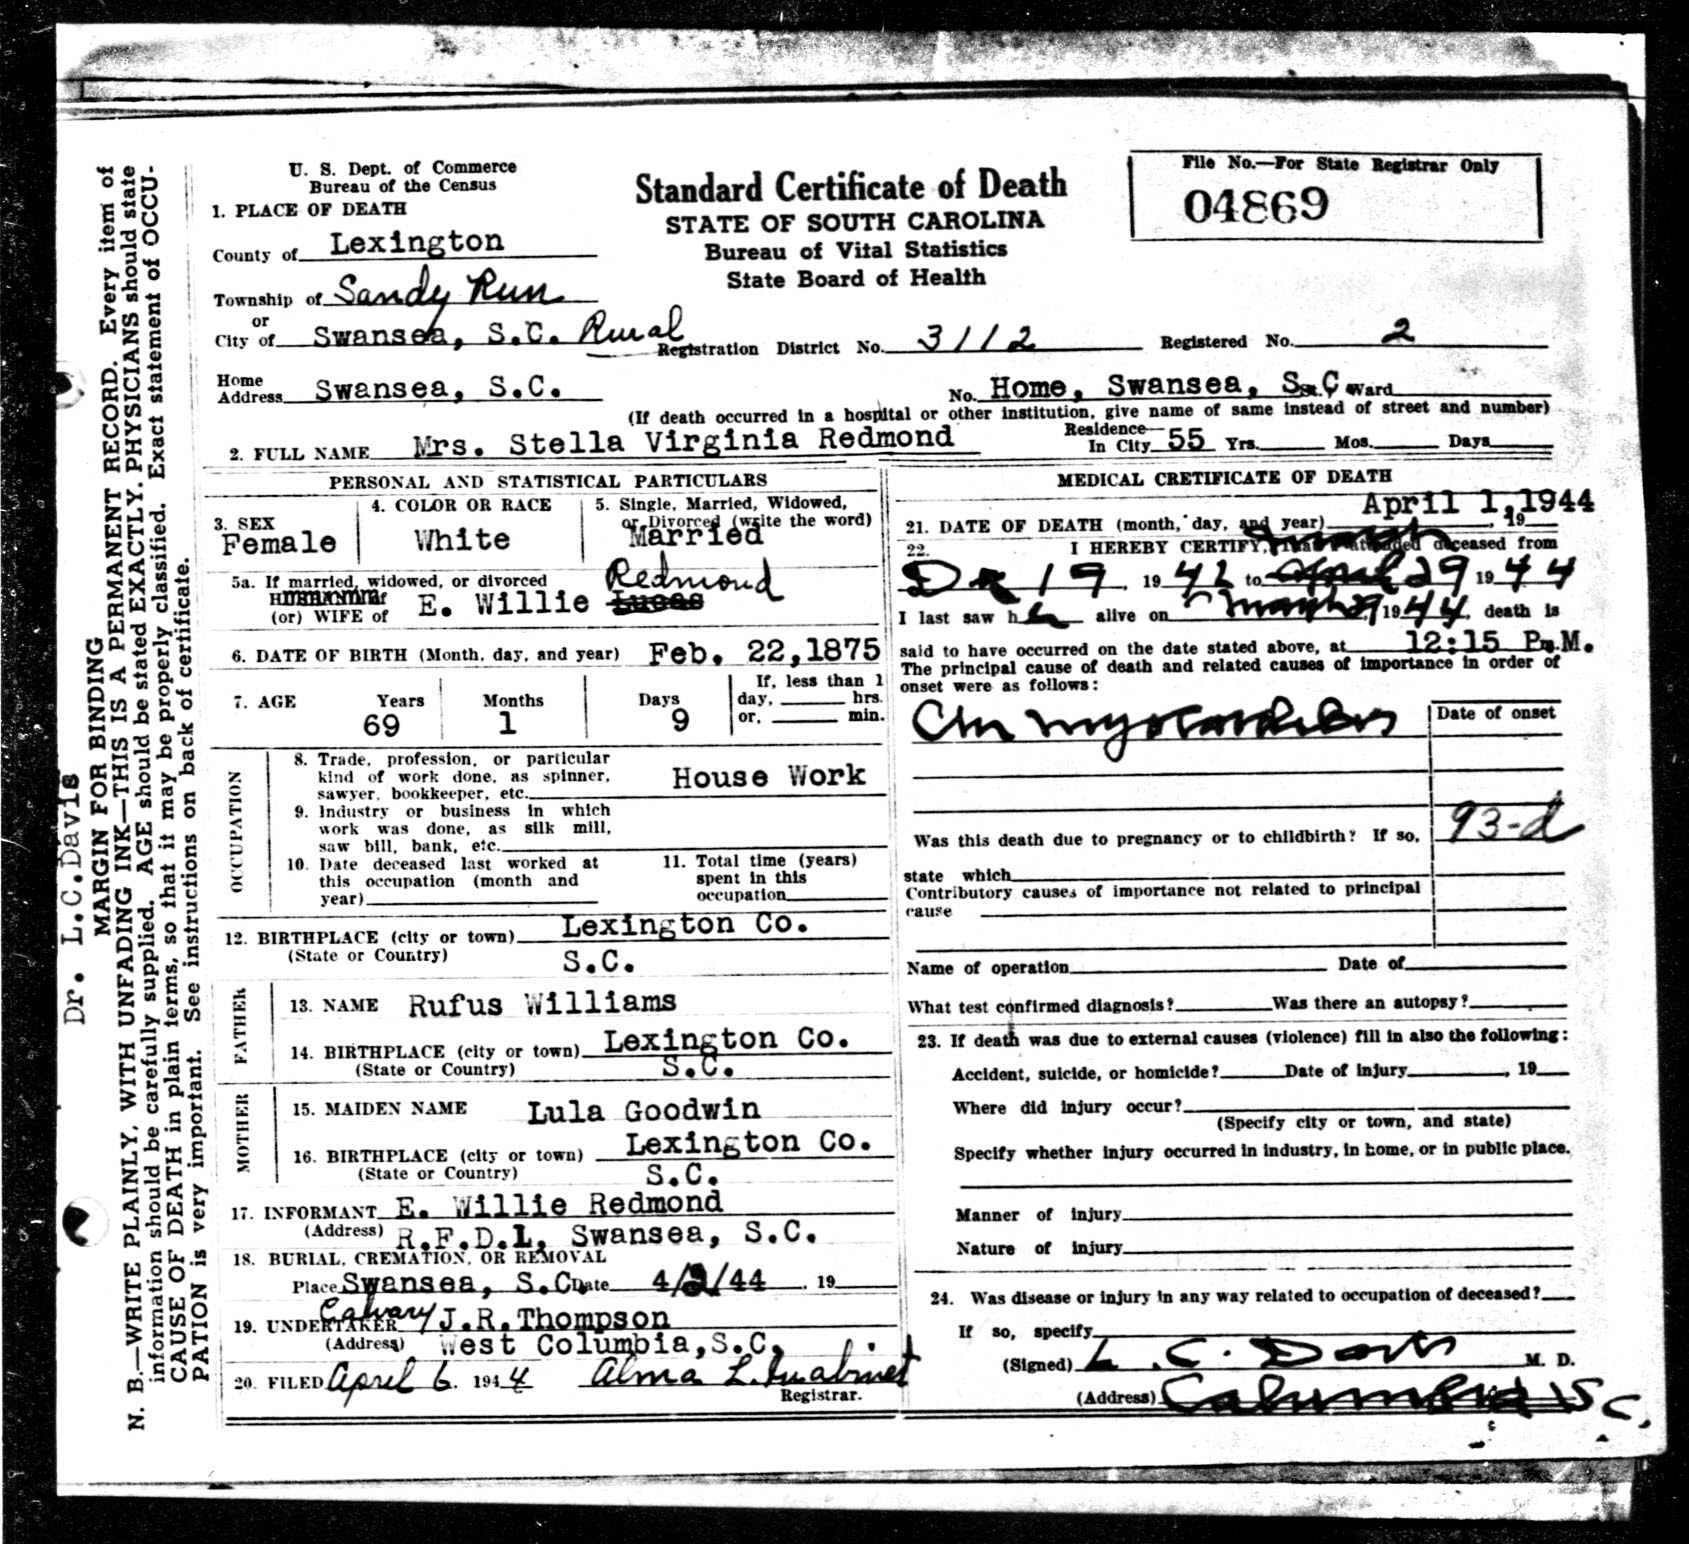 U. S. Dept. of Commerce
Bureau of the Census
Standard Certificate of Death
STATE OF SOUTH CAROLINA
Bureau of Vital Statistics
State Board of Health
File No.—For State Registrar Only
04869
1. PLACE OF DEATH
County of Lexington
Township of Sandy Run
or
City of Swansea, S.C. Rural
Registration District No. 3112
Registered No. 2
Home
Address Swansea, S.C.
No. Home, Swansea, S.C. Ward
(If death occurred in a hospital or other institution, give name of same instead of street and number)
2. FULL NAME Mrs. Stella Virginia Redmond
Residence—
In City 55 Yrs. Mos. Days
PERSONAL AND STATISTICAL PARTICULARS
3. SEX
Female
4. COLOR OR RACE
White
5. Single, Married, Widowed,
or Divorced (write the word)
Married
5a. If married, widowed, or divorced
(or) WIFE of E. Willie Lucas Redmond
6. DATE OF BIRTH (Month, day, and year) Feb. 22,1875
7. AGE
Years
69
Months
1
Days
9
If, less than 1
day, hrs.
or, min.
OCCUPATION
8. Trade, profession, or particular
kind of work done, as spinner,
sawyer, bookkeeper, etc. House Work
9. Industry or business in which
work was done, as silk mill,
saw bill, bank, etc.
10. Date deceased last worked at
this occupation (month and
year)
11. Total time (years)
spent in this
occupation
12. BIRTHPLACE (city or town) Lexington Co.
(State or Country) S.C.
FATHER
13. NAME Rufus Williams
14. BIRTHPLACE (city or town) Lexington Co.
(State or Country) S.C.
MOTHER
15. MAIDEN NAME Lula Goodwin
16. BIRTHPLACE (city or town) Lexington Co.
(State or Country) S.C.
17. INFORMANT E. Willie Redmond
(Address) R.F.D.1, Swansea, S.C.
18. BURIAL, CREMATION, OR REMOVAL
Place Swansea, S.C. Date 4/2/44, 19
Calvary
19. UNDERTAKER J.R.Thompson
(Address) West Columbia,S.C.
20. FILED April 6. 1944 Alma L.
Registrar.
MEDICAL CRETIFICATE OF DEATH
21. DATE OF DEATH (month, day, and year) April 1,1944, 19
22. I HEREBY CERTIFY, That I attended deceased from
19, 1942 to 29 1944
I last saw h alive on March 29 1944, death is
said to have occurred on the date stated above, at 12:15 P.M.
The principal cause of death and related causes of importance in order of
onset were as follows:
Date of onset
Chr myocarditis
93-d
Was this death due to pregnancy or to childbirth? If so,
state which
Contributory causes of importance not related to principal
cause
Name of operation Date of
What test confirmed diagnosis? Was there an autopsy?
23. If death was due to external causes (violence) fill in also the following:
Accident, suicide, or homicide? Date of injury , 19
Where did injury occur?
(Specify city or town, and state)
Specify whether injury occurred in industry, in home, or in public place.
Manner of injury
Nature of injury
24. Was disease or injury in any way related to occupation of deceased?
If so, specify
(Signed) L. C. Davis M. D.
(Address) Columbia S C,
Dr. L.C.Davis
MARGIN FOR BINDING
N. B.—WRITE PLAINLY, WITH UNFADING INK—THIS IS A PERMANENT RECORD. Every item of
information should be carefully supplied. AGE should be stated EXACTLY. PHYSICIANS should state
CAUSE OF DEATH in plain terms, so that it may be properly classified. Exact statement of OCCU-
PATION is very important. See instructions on back of certificate.